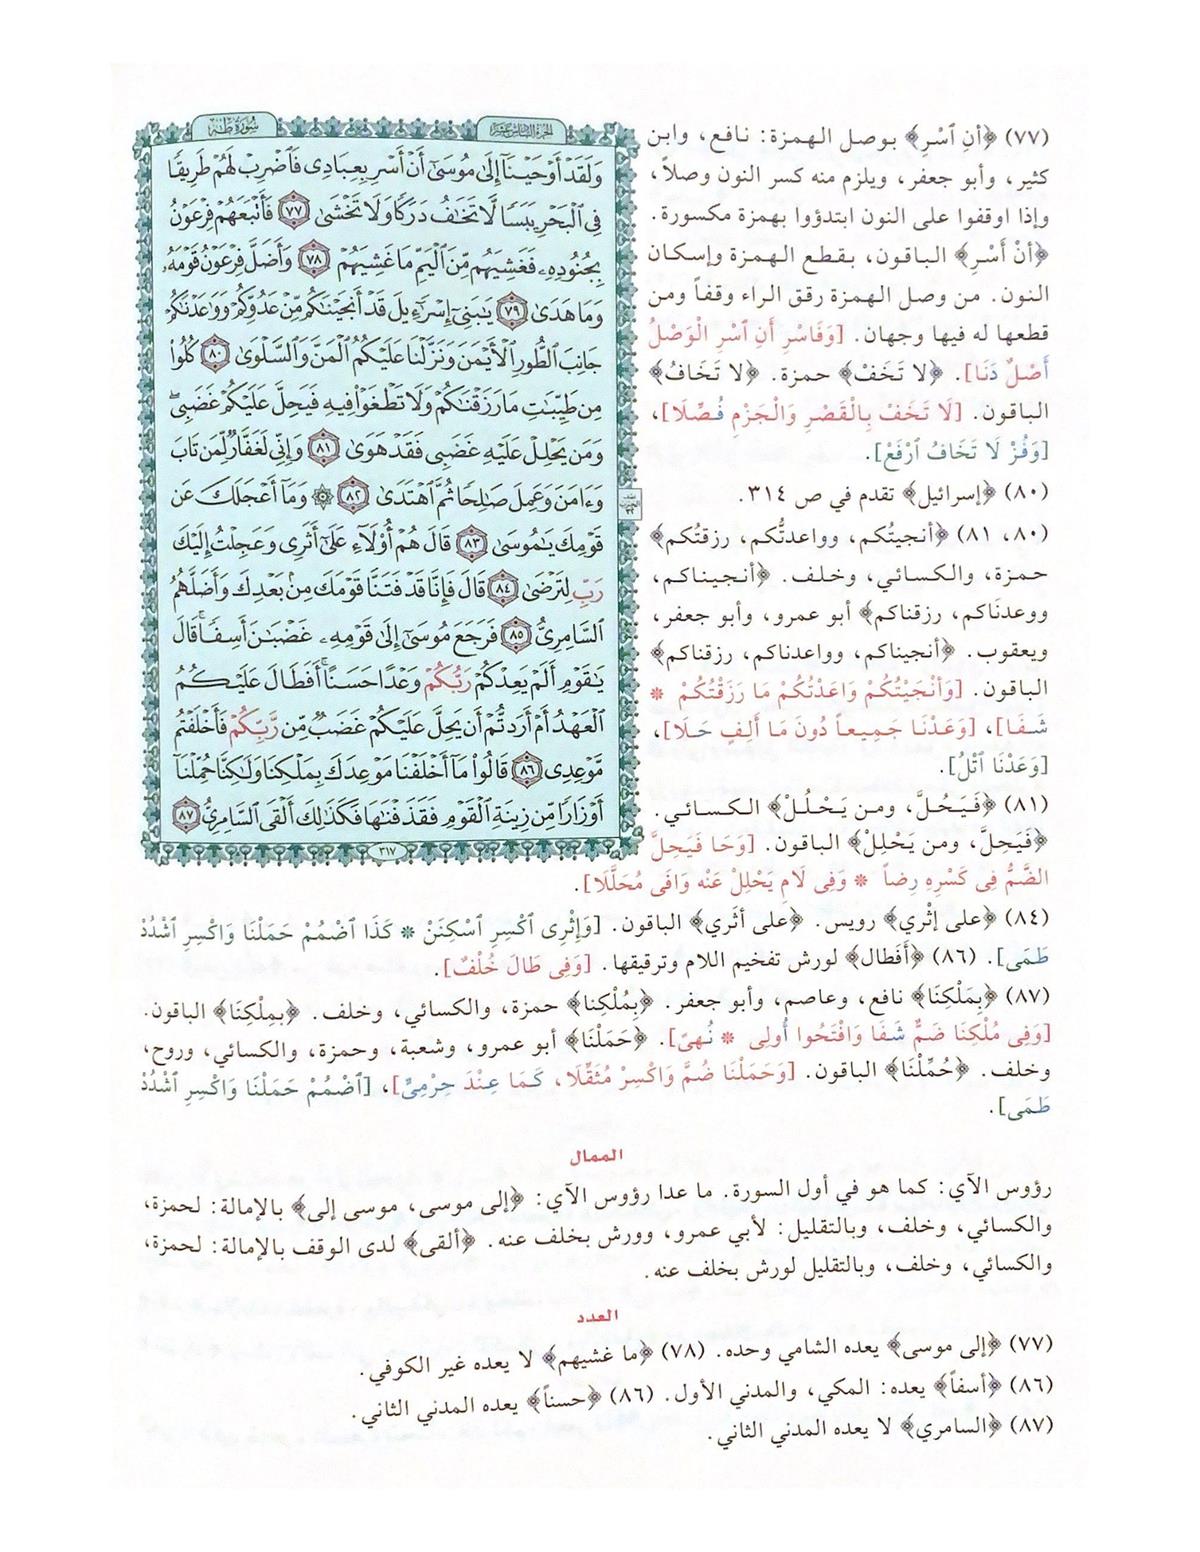 سُورَةُ طه
الجُزْءُ السَّادِسَ عَشَرَ
وَلَقَدْ أَوْحَيْنَآ إِلَىٰ مُوسَىٰٓ أَنْ أَسْرِ بِعِبَادِى فَٱضْرِبْ لَهُمْ طَرِيقًا
فِى ٱلْبَحْرِ يَبَسًا لَّا تَخَٰفُ دَرَكًا وَلَا تَخْشَىٰ ٧٧ فَأَتْبَعَهُمْ فِرْعَوْنُ
بِجُنُودِهِۦ فَغَشِيَهُم مِّنَ ٱلْيَمِّ مَا غَشِيَهُمْ ٧٨ وَأَضَلَّ فِرْعَوْنُ قَوْمَهُۥ
وَمَا هَدَىٰ ٧٩ يَٰبَنِىٓ إِسْرَٰٓءِيلَ قَدْ أَنجَيْنَٰكُم مِّنْ عَدُوِّكُمْ وَوَٰعَدْنَٰكُمْ
جَانِبَ ٱلطُّورِ ٱلْأَيْمَنَ وَنَزَّلْنَا عَلَيْكُمُ ٱلْمَنَّ وَٱلسَّلْوَىٰ ٨٠ كُلُوا۟
مِن طَيِّبَٰتِ مَا رَزَقْنَٰكُمْ وَلَا تَطْغَوْا۟ فِيهِ فَيَحِلَّ عَلَيْكُمْ غَضَبِى ۖ
وَمَن يَحْلِلْ عَلَيْهِ غَضَبِى فَقَدْ هَوَىٰ ٨١ وَإِنِّى لَغَفَّارٌ لِّمَن تَابَ
وَءَامَنَ وَعَمِلَ صَٰلِحًا ثُمَّ ٱهْتَدَىٰ ٨٢ ۞ وَمَآ أَعْجَلَكَ عَن
قَوْمِكَ يَٰمُوسَىٰ ٨٣ قَالَ هُمْ أُو۟لَآءِ عَلَىٰٓ أَثَرِى وَعَجِلْتُ إِلَيْكَ
رَبِّ لِتَرْضَىٰ ٨٤ قَالَ فَإِنَّا قَدْ فَتَنَّا قَوْمَكَ مِنۢ بَعْدِكَ وَأَضَلَّهُمُ
ٱلسَّامِرِىُّ ٨٥ فَرَجَعَ مُوسَىٰٓ إِلَىٰ قَوْمِهِۦ غَضْبَٰنَ أَسِفًا ۚ قَالَ
يَٰقَوْمِ أَلَمْ يَعِدْكُمْ رَبُّكُمْ وَعْدًا حَسَنًا ۚ أَفَطَالَ عَلَيْكُمُ
ٱلْعَهْدُ أَمْ أَرَدتُّمْ أَن يَحِلَّ عَلَيْكُمْ غَضَبٌ مِّن رَّبِّكُمْ فَأَخْلَفْتُم
مَّوْعِدِى ٨٦ قَالُوا۟ مَآ أَخْلَفْنَا مَوْعِدَكَ بِمَلْكِنَا وَلَٰكِنَّا حُمِّلْنَآ
أَوْزَارًا مِّن زِينَةِ ٱلْقَوْمِ فَقَذَفْنَٰهَا فَكَذَٰلِكَ أَلْقَى ٱلسَّامِرِىُّ ٨٧
٣١٧
(٧٧) ﴿أنِ ٱسْرِ﴾ بوصل الهمزة: نافع، وابن
كثير، وأبو جعفر، ويلزم منه كسر النون وصلاً،
وإذا اوقفوا على النون ابتدؤوا بهمزة مكسورة.
﴿أنْ أَسْرِ﴾ الباقون، بقطع الهمزة وإسكان
النون. من وصل الهمزة رقق الراء وقفاً ومن
قطعها له فيها وجهان. [وَفَاسْرِ أَنِ اسْرِ الْوَصْلُ
أَصْلٌ دَنَا]. ﴿لا تَخَفْ﴾ حمزة. ﴿لا تَخَافُ﴾
الباقون. [لَا تَخَفْ بِالْقَصْرِ وَالْجَزْمِ فُصِّلَا]،
[وَفُزْ لَا تَخَافُ ٱرْفَعْ].
(٨٠) ﴿إسرائيل﴾ تقدم في ص ٣١٤.
(٨٠، ٨١) ﴿أنجيتُكم، وواعدتُّكم، رزقتُكم﴾
حمزة، والكسائي، وخلف. ﴿أنجيناكم،
ووعدنَاكم، رزقناكم﴾ أبو عمرو، وأبو جعفر،
ويعقوب. ﴿أنجيناكم، وواعدناكم، رزقناكم﴾
الباقون. [وَأَنْجَيْتُكُمْ وَاعَدْتُكُمْ مَا رَزَقْتُكُمْ *
شَفَا]، [وَعَدْنَا جَمِيعاً دُونَ مَا أَلِفٍ حَلَا]،
[وَعَدْنَا ٱتْلُ].
(٨١) ﴿فَيَحُلَّ، ومن يَحْلُلْ﴾ الكسائي.
﴿فَيَحِلَّ، ومن يَحْلِلْ﴾ الباقون. [وَحَا فَيَحِلَّ
الضَّمُّ فِى كَسْرِهِ رِضاً * وَفِى لَامِ يَحْلِلْ عَنْه وَافَى مُحَلَّلَا].
(٨٤) ﴿على إثْري﴾ رويس. ﴿على أثَري﴾ الباقون. [وَإِثْرِى ٱكْسِرِ ٱسْكِنَنْ * كَذَا ٱضْمُمْ حَمَلْنَا وَاكْسِرِ ٱشْدُدْ
طَمَى]. (٨٦) ﴿أَفَطال﴾ لورش تفخيم اللام وترقيقها. [وَفِى طَالَ خُلْفٌ].
(٨٧) ﴿بِمَلْكِنَا﴾ نافع، وعاصم، وأبو جعفر. ﴿بِمُلْكِنا﴾ حمزة، والكسائي، وخلف. ﴿بمِلْكِنَا﴾ الباقون.
[وَفِى مُلْكِنَا ضَمٌّ شَفَا وَافْتَحُوا أُولِى * نُهىً]. ﴿حَمَلْنَا﴾ أبو عمرو، وشعبة، وحمزة، والكسائي، وروح،
وخلف. ﴿حُمِّلْنَا﴾ الباقون. [وَحَمَلْنَا ضُمَّ وَاكْسِرْ مُثَقِّلَا، كَمَا عِنْدَ حِرْمِىٍّ]، [ٱضْمُمْ حَمَلْنَا وَاكْسِرِ ٱشْدُدْ
طَمَى].
الممال
رؤوس الآي: كما هو في أول السورة. ما عدا رؤوس الآي: ﴿إلى موسى، موسى إلى﴾ بالإمالة: لحمزة،
والكسائي، وخلف، وبالتقليل: لأبي عمرو، وورش بخلف عنه. ﴿ألقى﴾ لدى الوقف بالإمالة: لحمزة،
والكسائي، وخلف، وبالتقليل لورش بخلف عنه.
العدد
(٧٧) ﴿إلى موسى﴾ يعده الشامي وحده. (٧٨) ﴿ما غشيهم﴾ لا يعده غير الكوفي.
(٨٦) ﴿أسفاً﴾ يعده: المكي، والمدني الأول. (٨٦) ﴿حسناً﴾ يعده المدني الثاني.
(٨٧) ﴿السامري﴾ لا يعده المدني الثاني.